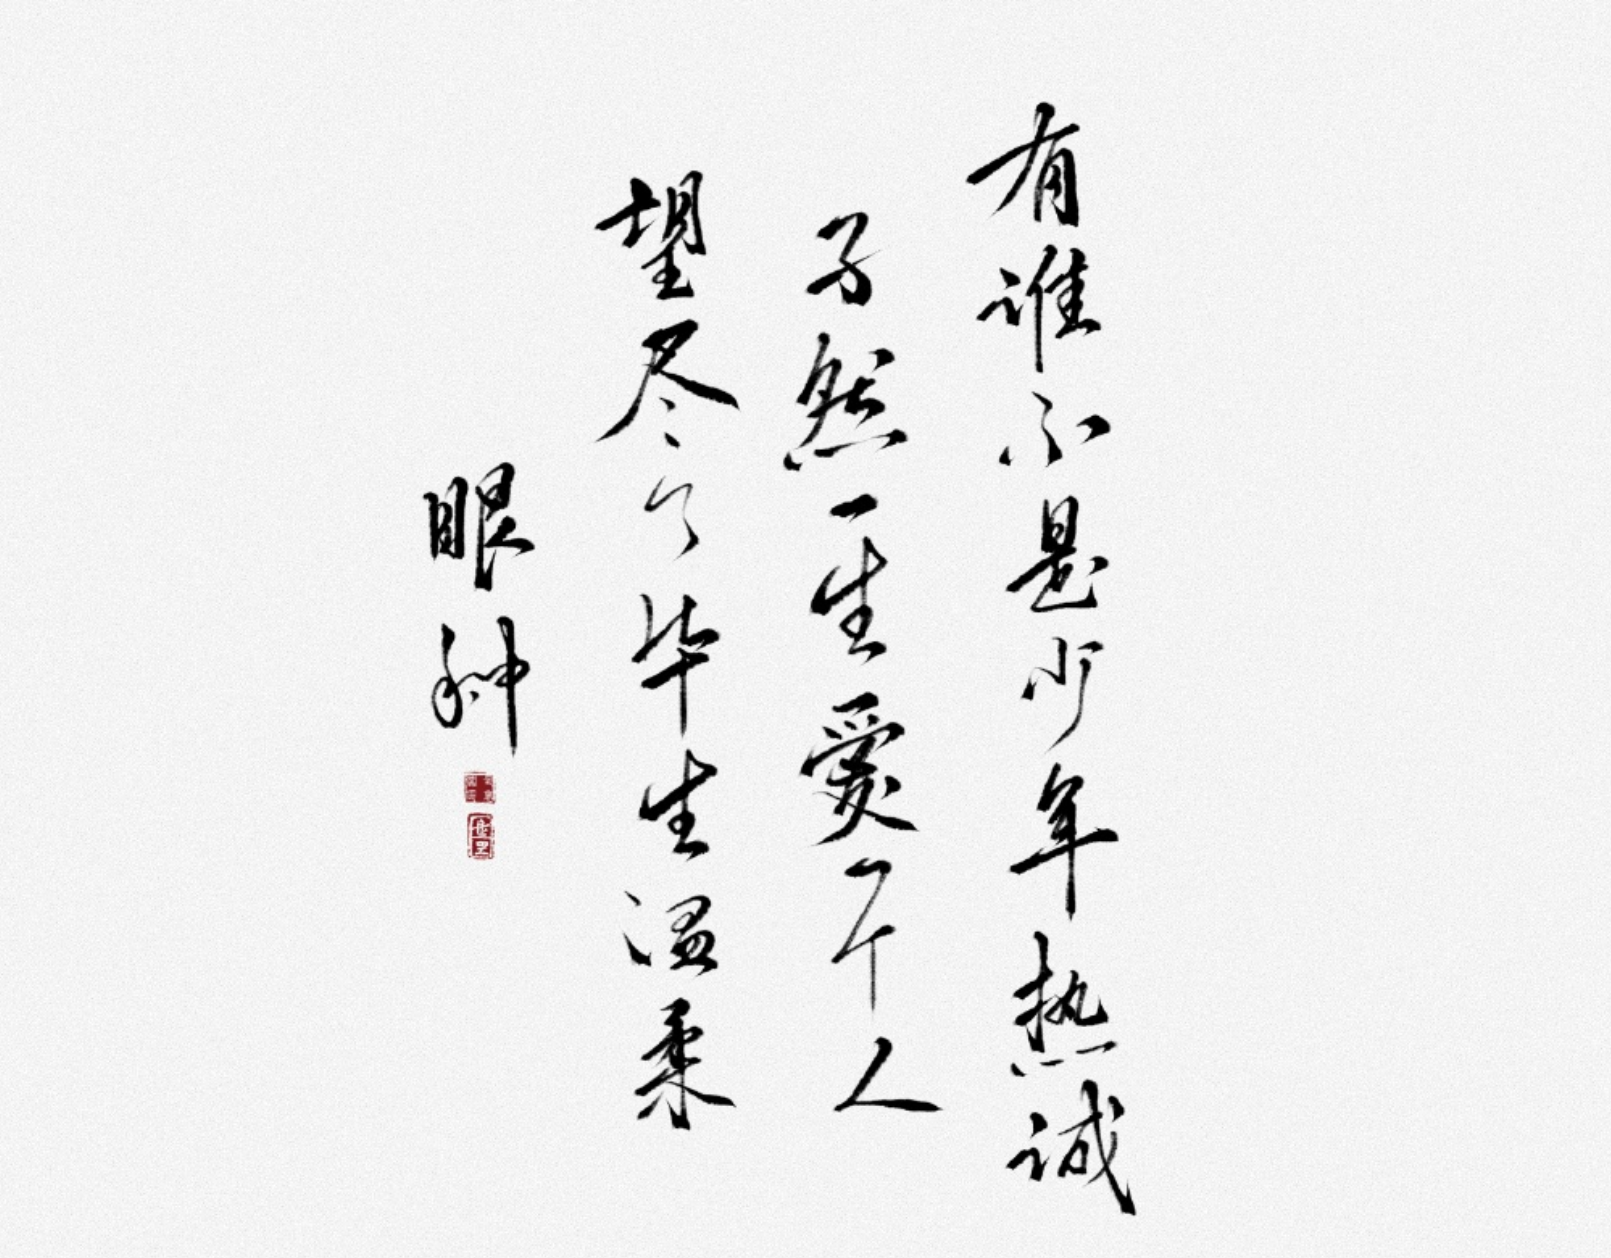 有谁不是少年热诚
孑然一生愛一个人
望尽了毕生温柔
眼神